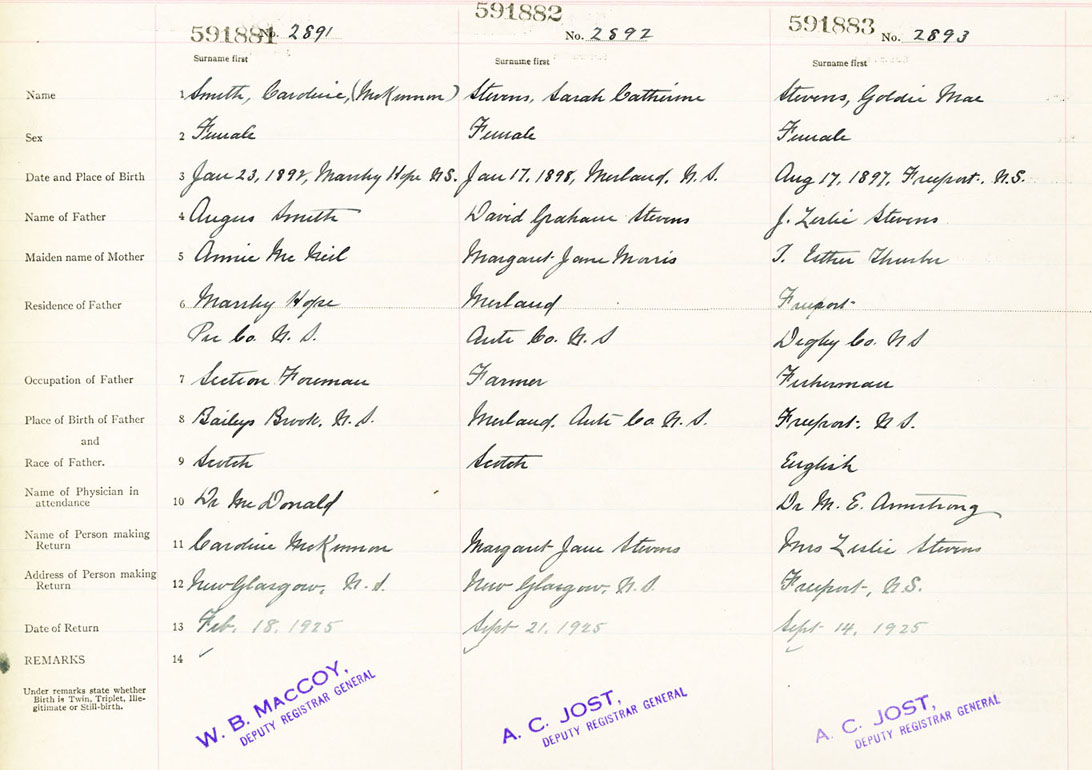 591881 No. 2891 591882 No. 2892 591883 No. 2893
Surname first Surname first Surname first
Name 1 Smith, Caroline, (McKinnon) Stevens, Sarah Catherine Stevens, Goldie Mae
Sex 2 Female Female Female
Date and Place of Birth 3 Jan 23, 1892, Marshy Hope N.S. Jan 17, 1898, Merland, N.S. Aug 17, 1897, Freeport, N.S.
Name of Father 4 Angus Smith David Graham Stevens J. Leslie Stevens
Maiden name of Mother 5 Annie McNeil Margaret Jane Morris T. Esther Thurber
Residence of Father 6 Marshy Hope Merland Freeport
Pic Co. N.S. Anti Co. N.S Digby Co. NS
Occupation of Father 7 Section Foreman Farmer Fisherman
Place of Birth of Father 8 Baileys Brook, N.S. Merland, Anti Co N.S. Freeport, N S.
and
Race of Father. 9 Scotch Scotch English
Name of Physician in
attendance 10 Dr McDonald Dr M. E. Armstrong
Name of Person making
Return 11 Caroline McKinnon Margaret Jane Stevens Mrs Leslie Stevens
Address of Person making
Return 12 New Glasgow, N.S. New Glasgow, N.S. Freeport, N.S.
Date of Return 13 Feb. 18, 1925 Sept 21, 1925 Sept 14, 1925
REMARKS 14
Under remarks state whether
Birth is Twin, Triplet, Ille-
gitimate or Still-birth.
W. B. MACCOY,
DEPUTY REGISTRAR GENERAL
A. C. JOST,
DEPUTY REGISTRAR GENERAL
A. C. JOST,
DEPUTY REGISTRAR GENERAL